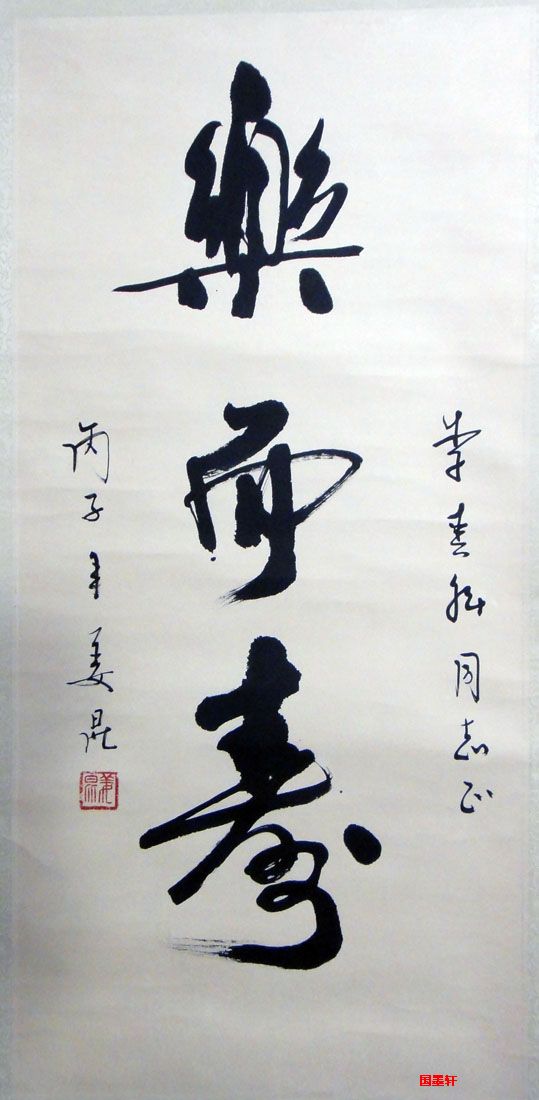 李春 同志正
樂而壽
丙子年姜昆
姜昆
国墨轩